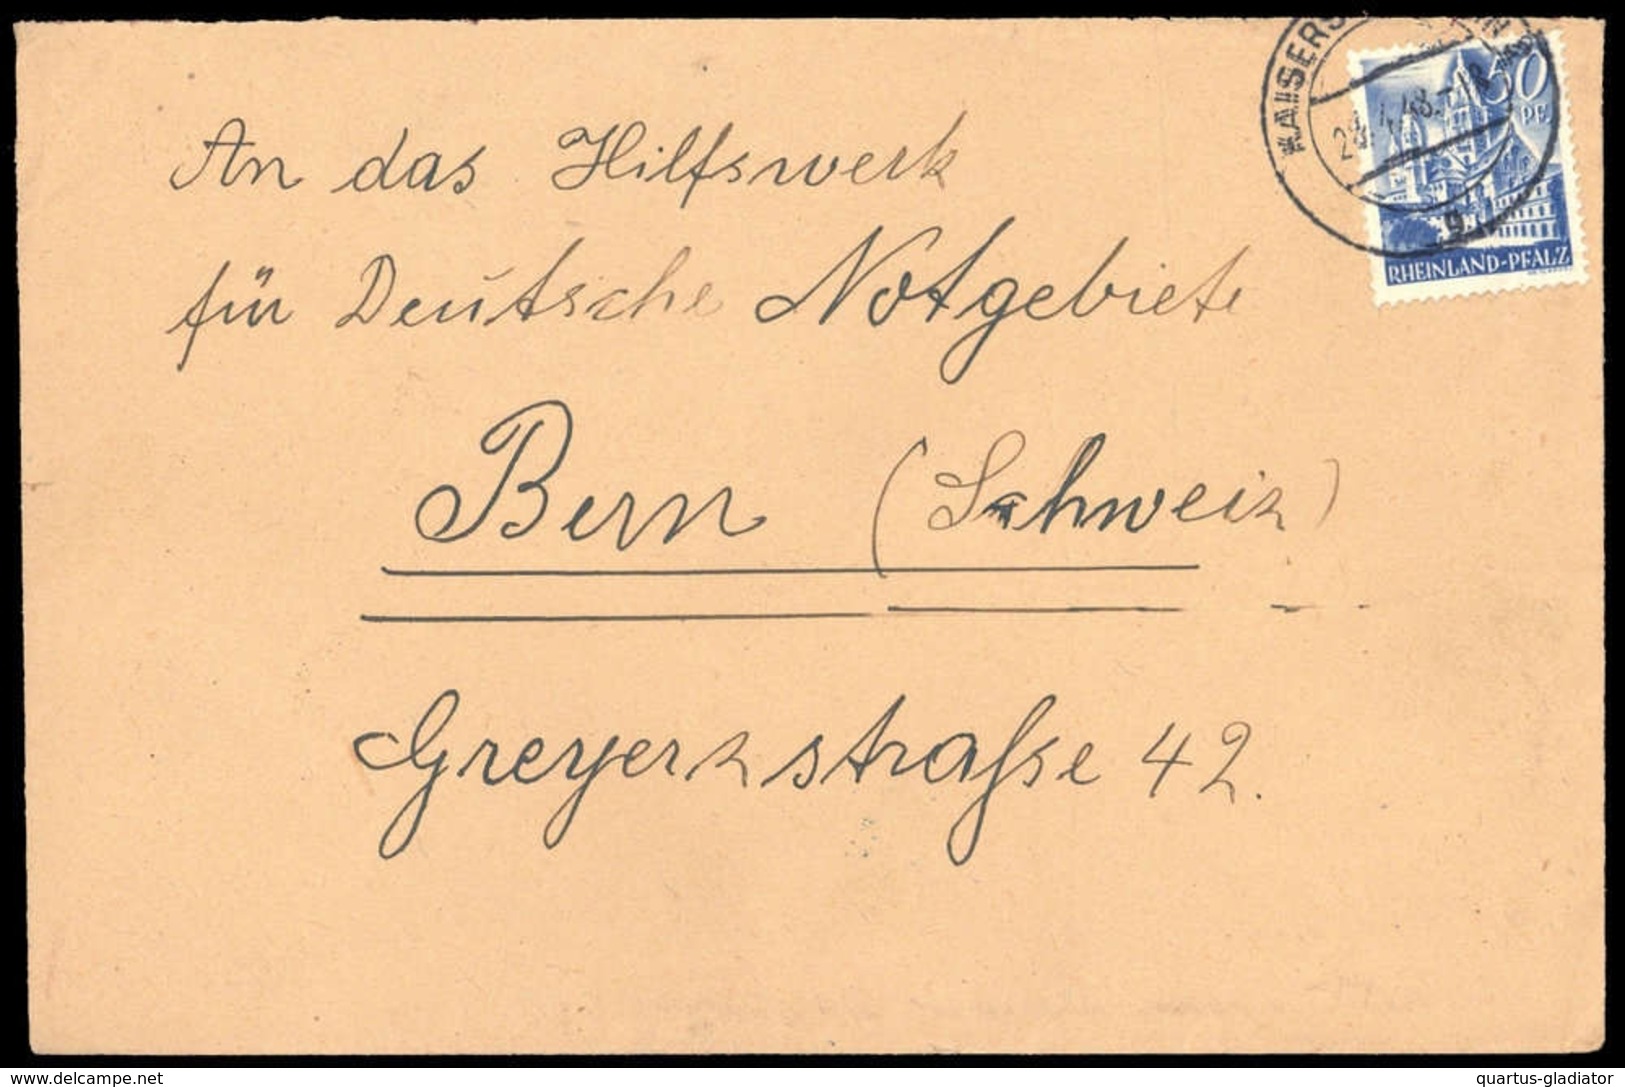 KAISERS
28.4.48.-18
50
PF.
g
RHEINLAND-PFALZ
An das Hilfswerk
für Deutsche Notgebiete
Bern (Schweiz)
Greyerzstraße 42.
delcampe.net
quartus-gladiator